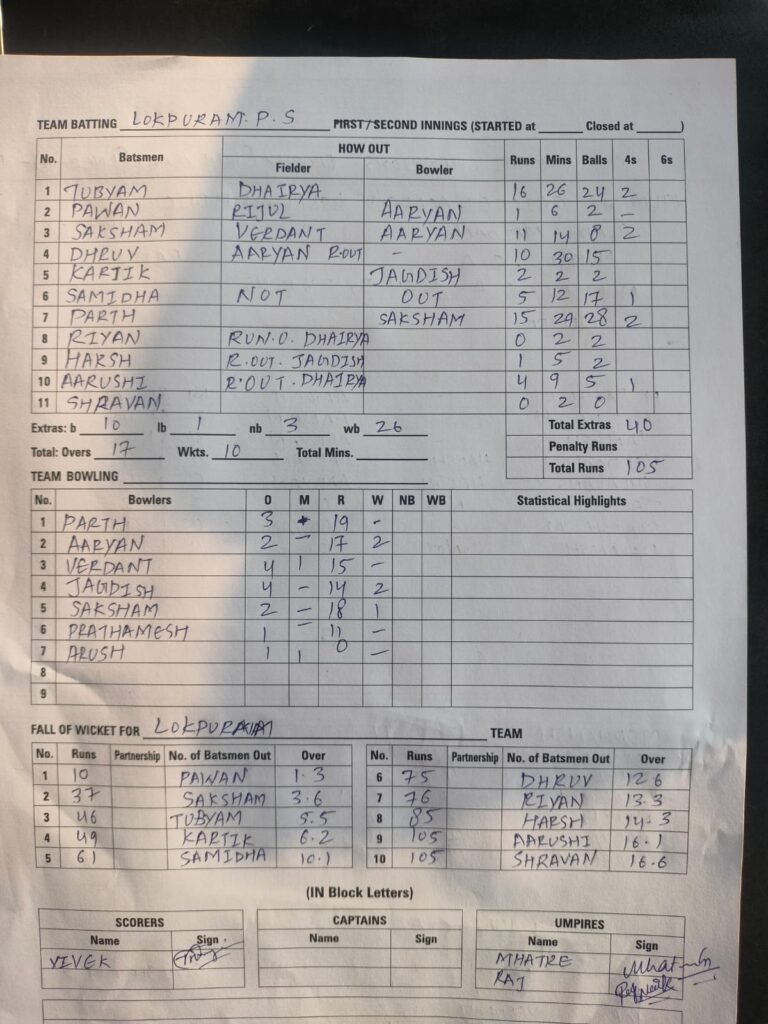 TEAM BATTING LOKPURAM. P. S FIRST/SECOND INNINGS (STARTED at ______ Closed at ______)
No. Batsmen HOW OUT Runs Mins Balls 4s 6s
Fielder Bowler
1 TUBYAM DHAIRYA 16 26 24 2
2 PAWAN RIJUL AARYAN 1 6 2 –
3 SAKSHAM VERDANT AARYAN 11 14 8 2
4 DHRUV AARYAN R.OUT - 10 30 15
5 KARTIK JAGDISH 2 2 2
6 SAMIDHA NOT OUT 5 12 17 1
7 PARTH SAKSHAM 15 29 28 2
8 RIYAN RUN.O. DHAIRYA 0 2 2
9 HARSH R.OUT. JAGDISH 1 5 2
10 AARUSHI R.OUT. DHAIRYA 4 9 5 1
11 SHRAVAN 0 2 0
Extras: b 10 lb 1 nb 3 wb 26 Total Extras 40
Penalty Runs
Total: Overs 17 Wkts. 10 Total Mins. ______ Total Runs 105
TEAM BOWLING
No. Bowlers O M R W NB WB Statistical Highlights
1 PARTH 3 19 -
2 AARYAN 2 – 17 2
3 VERDANT 4 1 15 –
4 JAGDISH 4 – 14 2
5 SAKSHAM 2 – 18 1
6 PRATHAMESH 1 – 11 –
7 ARUSH 1 1 0 –
8
9
FALL OF WICKET FOR LOKPURAM TEAM
No. Runs Partnership No. of Batsmen Out Over No. Runs Partnership No. of Batsmen Out Over
1 10 PAWAN 1.3 6 75 DHRUV 12.6
2 37 SAKSHAM 3.6 7 76 RIYAN 13.3
3 46 TUBYAM 5.5 8 85 HARSH 14.3
4 49 KARTIK 6.2 9 105 AARUSHI 16.1
5 61 SAMIDHA 10.1 10 105 SHRAVAN 16.6
(IN Block Letters)
SCORERS CAPTAINS UMPIRES
Name Sign Name Sign Name Sign
VIVEK MHATRE
RAJ